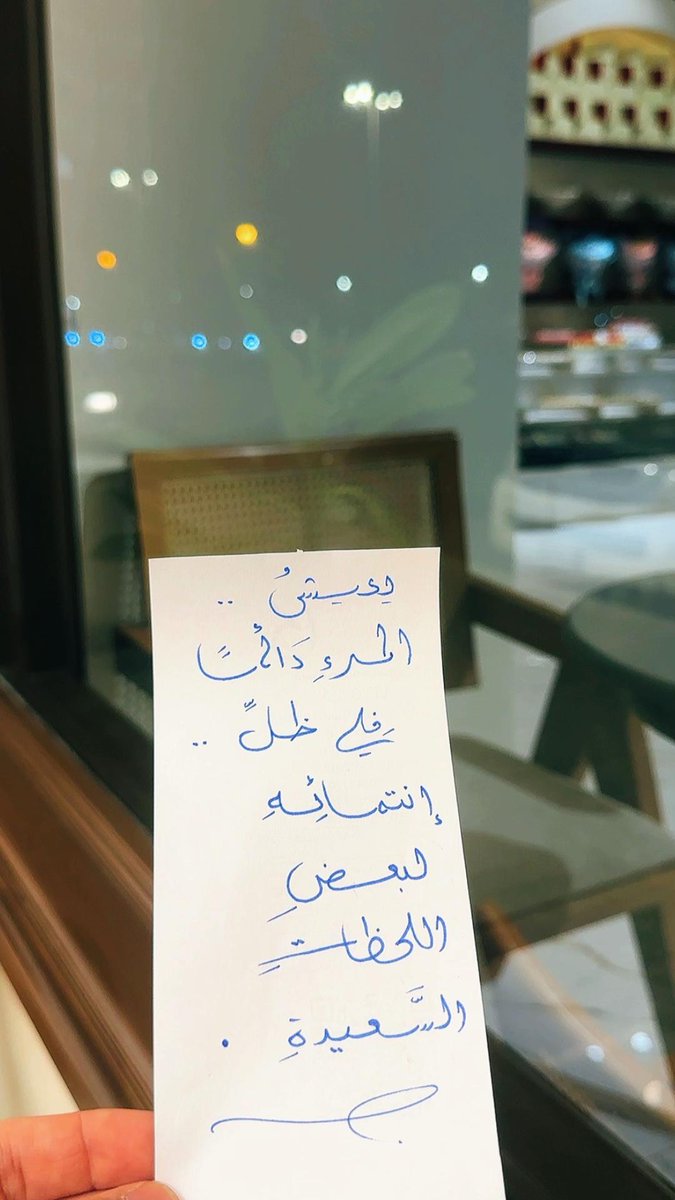 يعيشُ ..
المرءِ دَائمًا
فِي ظلٍّ ..
إنتمائِهِ
لبعضِ
اللحظاتِ
السَّعيدةِ .